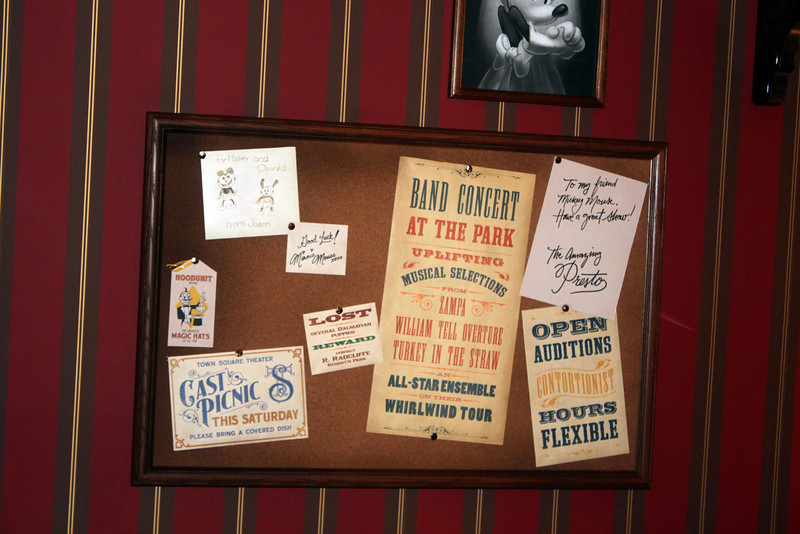 For Mickey and
Oswald
From Jason
Good Luck!
Minnie Mouse
xoxo
HOODUNIT
MAGIC HATS
TOWN SQUARE THEATER
CAST
PICNIC
THIS SATURDAY
PLEASE BRING A COVERED DISH
LOST
SEVERAL DALMATIAN
PUPPIES
REWARD
CONTACT
R. RADCLIFFE
REGENT'S PARK
BAND CONCERT
AT THE PARK
UPLIFTING
MUSICAL SELECTIONS
FROM
ZAMPA
WILLIAM TELL OVERTURE
TURKEY IN THE STRAW
AN
ALL-STAR ENSEMBLE
ON THEIR
WHIRLWIND TOUR
To my friend
Mickey Mouse,
Have a great show!
The Amazing
Presto
OPEN
AUDITIONS
CONTORTIONIST
HOURS
FLEXIBLE